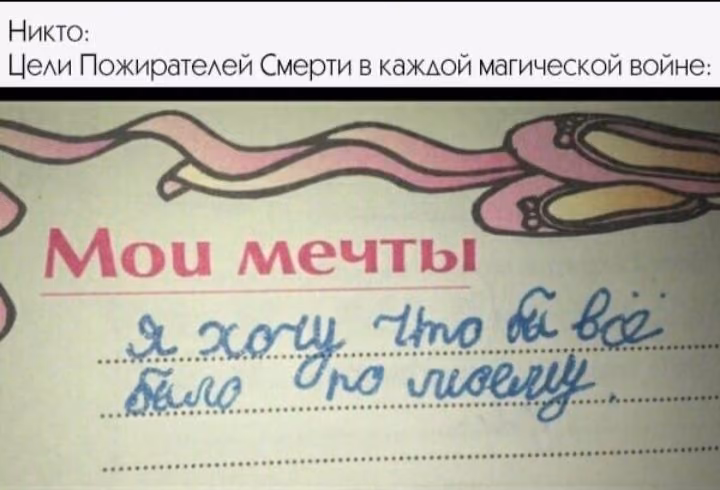 Никто:
Цели Пожирателей Смерти в каждой магической войне:
Мои мечты
Я хочу что бы всё
было по моему.